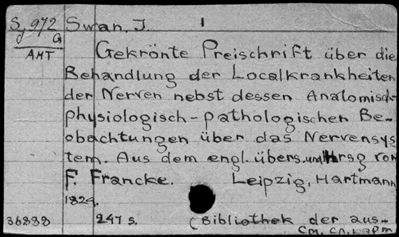 Sy 972 Swan, J. 1
G
AHT Gekrönte Preischrift über die
Behandlung der Localkrankheiten
der Nerven nebst dessen Anatomisch-
physiologisch-pathologischen Be-
obachtungen über das Nervensys
tem. Aus dem engl. übers. und Hrsg von
F. Francke. Leipzig, Hartmann
1824.
36888 247 s. (Bibliothek der aus-